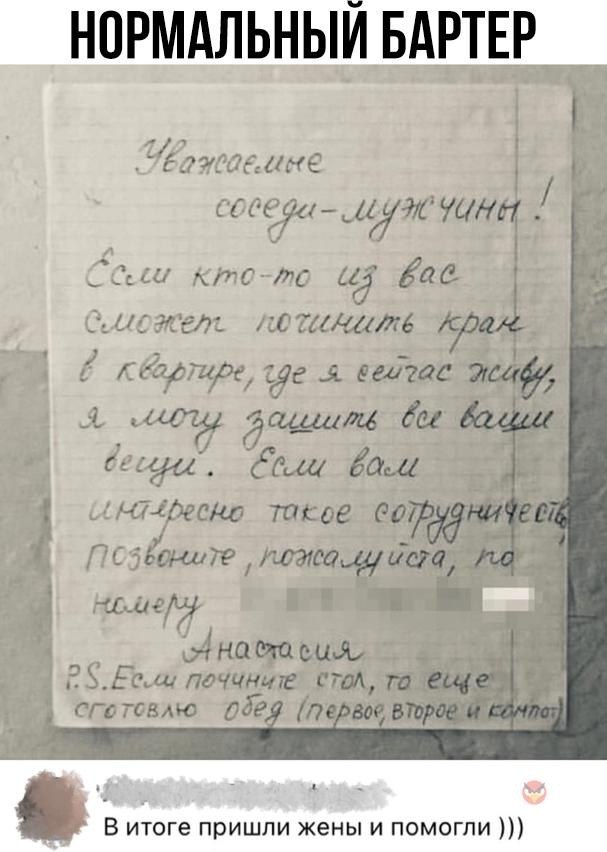 НОРМАЛЬНЫЙ БАРТЕР
Уважаемые
соседи-мужчины!
Если кто-то из вас
сможет починить кран
в квартире, где я сейчас живу,
я могу зашить все ваши
вещи. Если вам
интересно такое сотрудничеств
позвоните, пожалуйста, по
номеру
Анастасия
P.S. Если почините стол, то еще
сготовлю обед (первое, второе и компот)
В итоге пришли жены и помогли )))